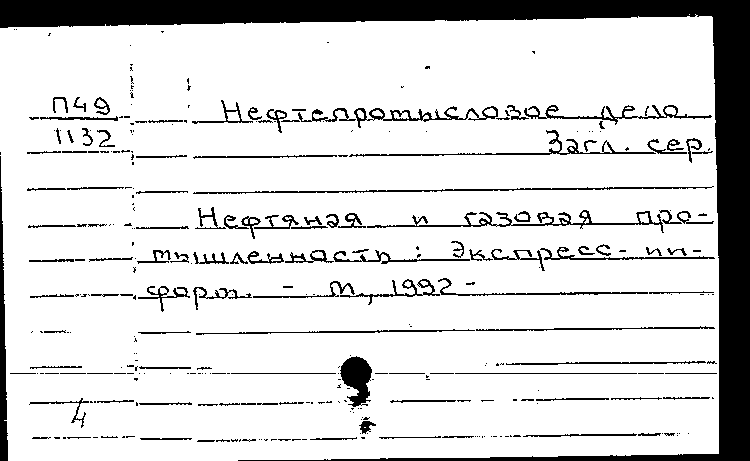 П49 Нефтепромысловое дело
1132 Загл. сер.
Нефтяная и газовая про-
мышленность : Экспресс-ин-
форм. - М., 1992 -
4